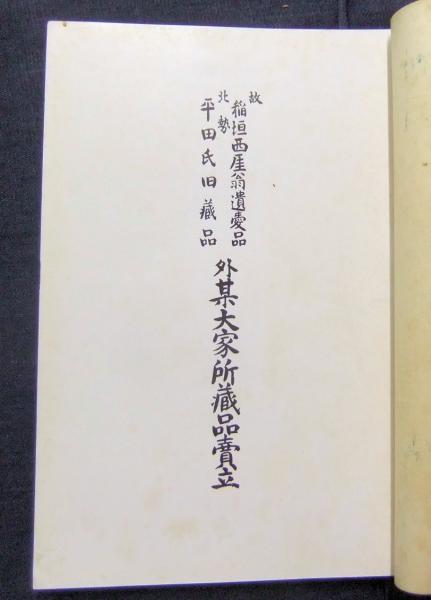 故 稲垣西厓翁遺愛品
北勢 平田氏旧藏品
外某大家所藏品賣立